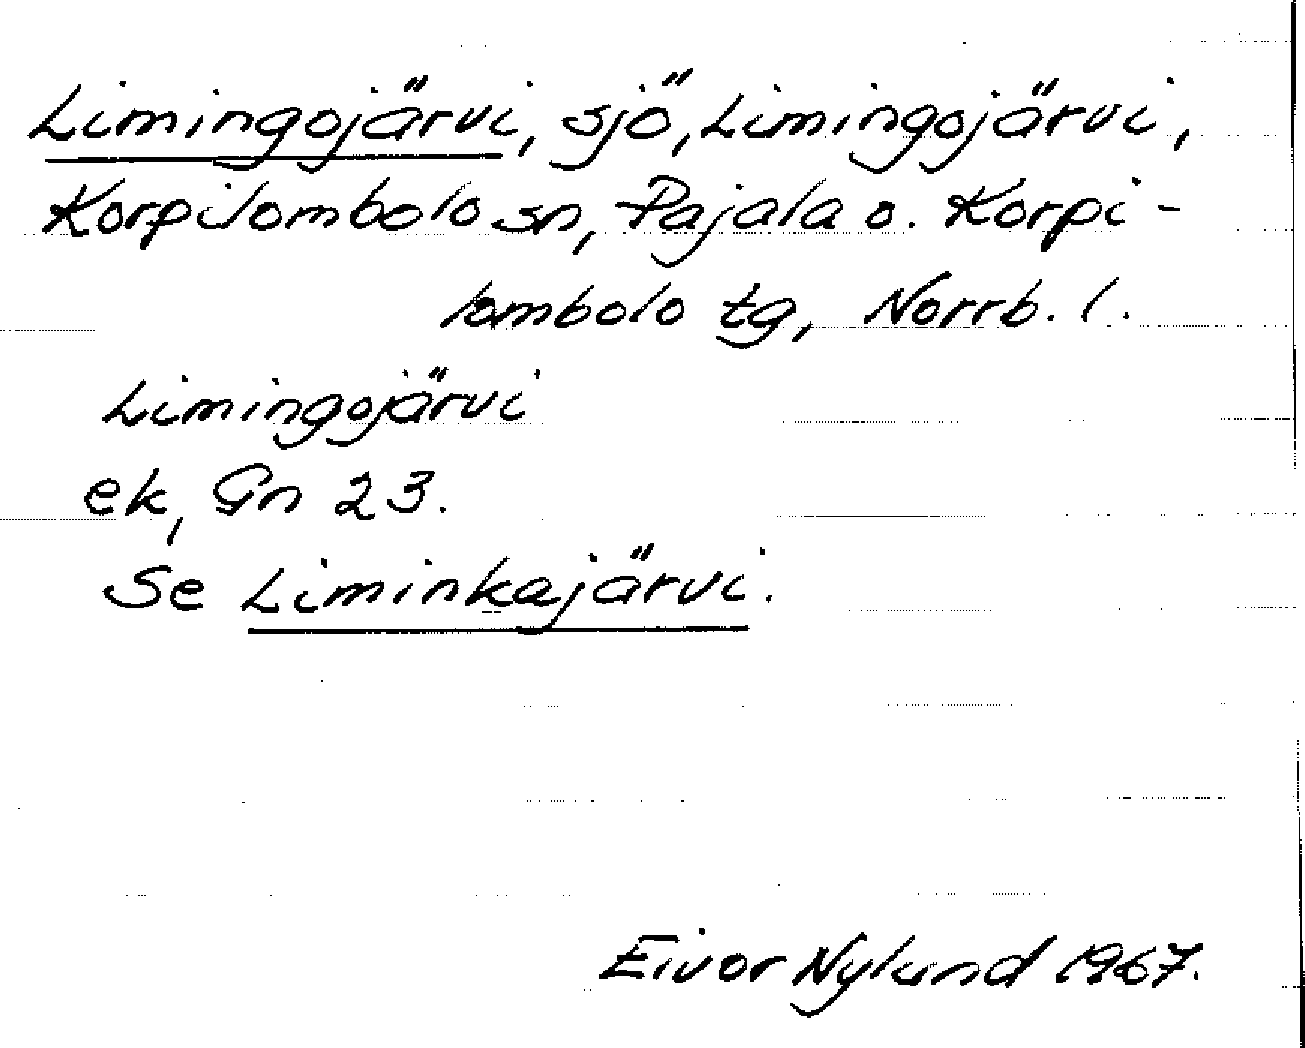 Limingojärvi, sjö, Limingojärvi,
Korpilombolo sn, Pajala o. Korpi-
lombolo tg, Norrb. l.
Limingojärvi
ek, Gn 23.
Se Liminkajärvi.
Eivor Nylund 1967.